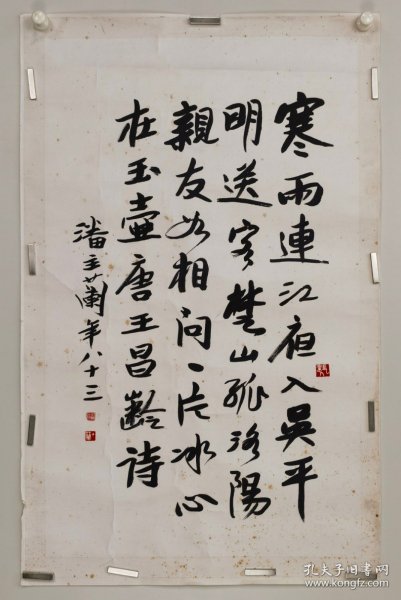 寒雨連江夜入吳平
明送客楚山孤洛陽
親友如相問一片冰心
在玉壺唐王昌齡詩
潘主蘭年八十三
孔夫子旧书网
www.kongfz.com